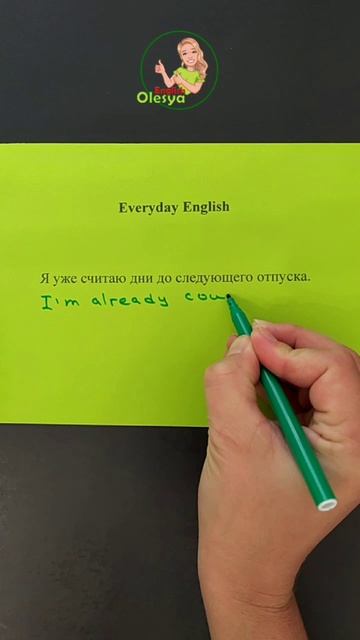 English
Olesya
Everyday English
Я уже считаю дни до следующего отпуска.
I'm already cou